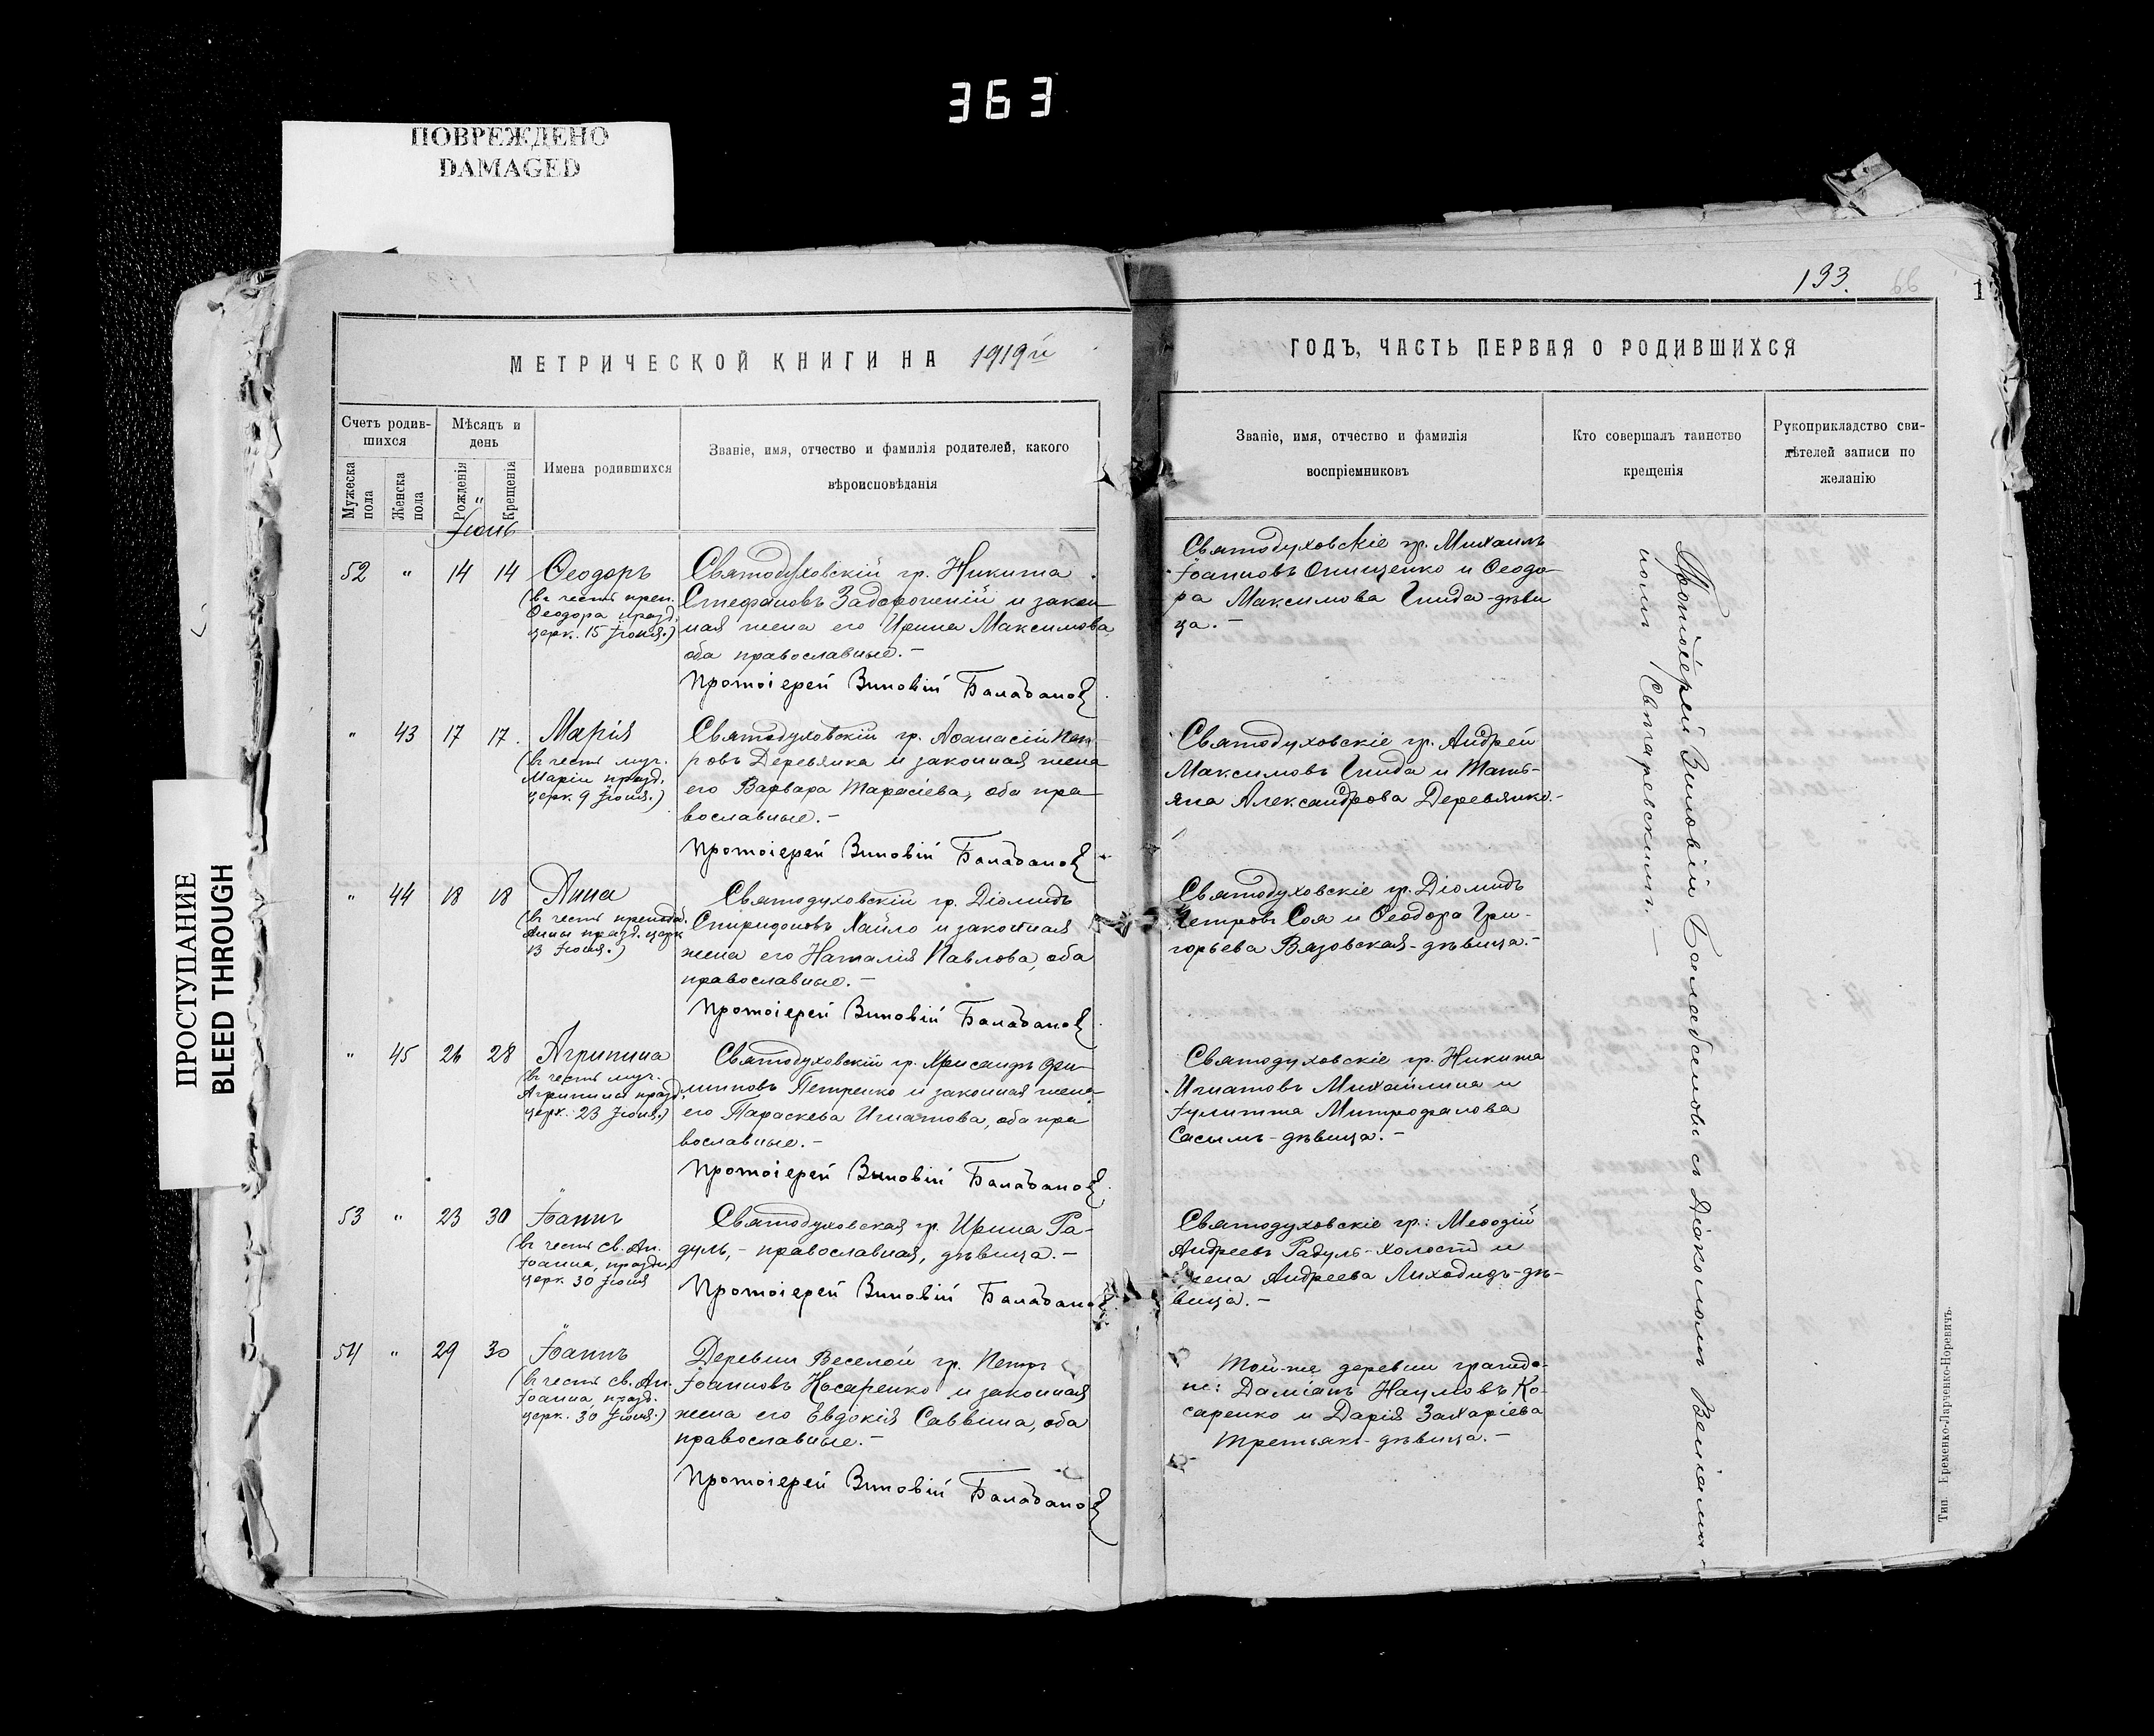 363
ПОВРЕЖДЕНО
DAMAGED
ПРОСТУПАНИЕ
BLEED THROUGH
193.
66
1
МЕТРИЧЕСКОЙ КНИГИ НА 1919й
ГОДЪ, ЧАСТЬ ПЕРВАЯ О РОДИВШИХСЯ
Счетъ родив-
шихся
Мужеска
пола
Женска
пола
Мѣсяцъ и
день
Рожденія
Крещенія
Имена родившихся
Званіе, имя, отчество и фамилія родителей, какого
вѣроисповѣданія
Званіе, имя, отчество и фамилія
воспріемниковъ
Кто совершалъ таинство
крещенія
Рукоприкладство сви-
дѣтелей записи по
желанію
Іюнь
52 " 14 14 Ѳеодоръ
(въ честь преп.
Ѳеодора празд.
церк. 15 Іюня.)
Святодуховскій гр. Никита
Стефановъ Задорожній и закон-
ная жена его Ирина Максимова
оба православные.–
Протоіерей Зиновій Балабановъ
Святодуховскіе гр. Михаилъ
Іоанновъ Онищенко и Ѳеодо-
ра Максимова Гнида-дѣви
ца.–
" 43 17 17. Марія
(въ честь муч.
Маріи празд.
церк. 9 Іюня.)
Святодуховскій гр. Аѳанасій Пет-
ровъ Деревянка и законная жена
его Варвара Тарасіева, оба пра-
вославные.–
Протоіерей Зиновій Балабановъ
Святодуховскіе гр. Андрей
Максимовъ Гнида и Тать-
яна Александрова Деревянко.–
" 44 18 18 Анна
(въ честь преподоб.
Анны празд. церк
13 Іюня.)
Святодуховскій гр. Діомидъ
Спиридоновъ Хайло и законная
жена его Наталія Павлова, оба
православные.–
Протоіерей Зиновій Балабановъ
Святодуховскіе гр. Діомидъ
Петровъ Соя и Ѳеодора Гри-
горьева Вязовская-дѣвица.–
" 45 26 28 Агрипина
(въ честь муч.
Агрипины празд.
церк. 23 Іюня.)
Святодуховскій гр.
Петренко и законная жена
его Параскева Игнатова, оба пра
вославные.–
Протоіерей Зиновій Балабановъ
Святодуховскіе гр. Никита
Игнатовъ Михайлича и
Іулитта Митрофанова
Сасымъ-дѣвица.–
53 " 23 30 Іоаннъ
(въ честь св. Ап.
Іоанна, праздн.
церк. 30 Іюня
Святодуховская гр. Ирина Ра-
дуль,– православная, дѣвица.–
Протоіерей Зиновій Балабановъ
Святодуховскіе гр.: Меѳодій
Андреевъ Радуль-холостъ и
Елена Андреева Лиходидъ-дѣ-
вица.–
54 " 29 30 Іоаннъ
(въ честь св. Ап.
Іоанна, празд.
церк. 30 Іюня.)
Деревни Веселой гр. Петръ
Іоанновъ Косаренко и законная
жена его Евдокія Саввина, оба
православные.–
Протоіерей Зиновій Балабановъ
Той-же деревни гражда-
не: Даміанъ Наумовъ Ко-
саренко и Дарія Захаріева
Третьякъ-дѣвица.–
Протоіерей Зиновій Балабановъ съ Діакономъ Веніами-
номъ
Тип. Еременко-Ларченко-Норевичъ.